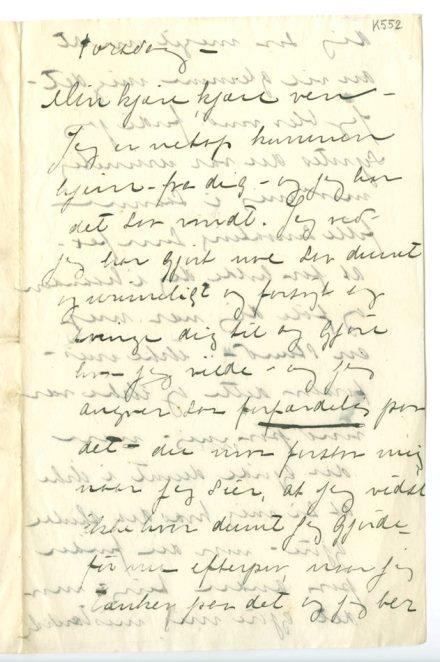 K552
Torsdag –
Min kjære, kjære ven –
Jeg er netop kummen
hjem – fra dig – og jeg har
det saa vondt. Jeg ved
jeg har gjort noe saa dumt
og urimeligt og forsøgt og
tvinge dig til og gjøre
hva jeg vilde – og jeg
angrer saa forfærdelig paa
det – du maa forstaa mig
naar jeg sier, at jeg vidste
ikke hvor dumt jeg gjorde –
før nu efterpaa, naar jeg
tænker paa det og jeg ber